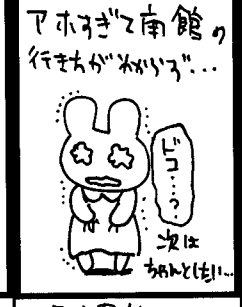 アホすぎて南館の
行き方がわからず...
ドコ...?
次は
ちゃんとしたい...